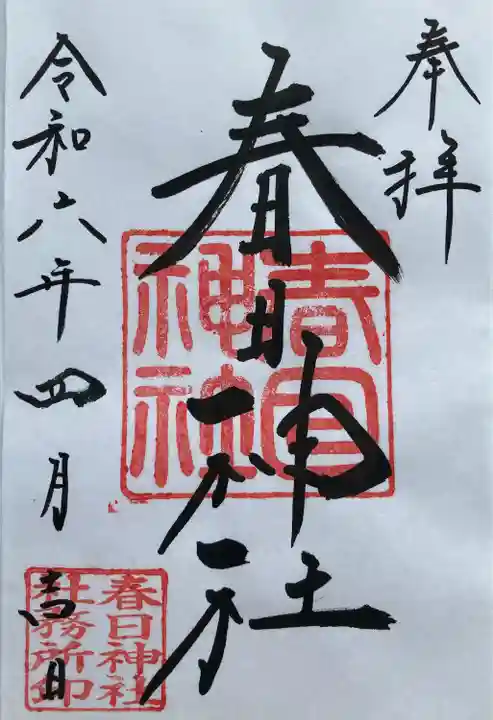 奉拝
春日神社
春日神社
令和六年四月吉日
春日神社
社務所印